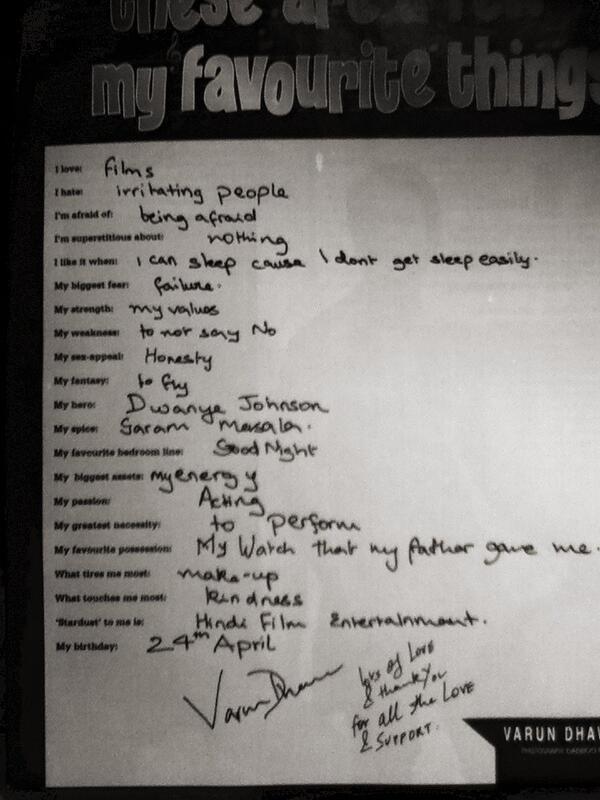 these are a few
my favourite things
I love: films
I hate: irritating people
I'm afraid of: being afraid
I'm superstitious about: nothing
I like it when: I can sleep cause I dont get sleep easily.
My biggest fear: failure.
My strength: my values
My weakness: to not say No
My sex-appeal: Honesty
My fantasy: to fly
My hero: Dwanye Johnson
My spice: Garam Masala.
My favourite bedroom line: Good Night
My biggest assets: my energy
My passion: Acting
My greatest necessity: to perform
My favourite possession: My Watch that my father gave me.
What tires me most: make-up
What touches me most: Kindness
'Stardust' to me is: Hindi Film Entertainment.
My birthday: 24th April
Varun Dhawan
lots of Love
& thank You
for all the Love
& SUPPORT.
VARUN DHAW